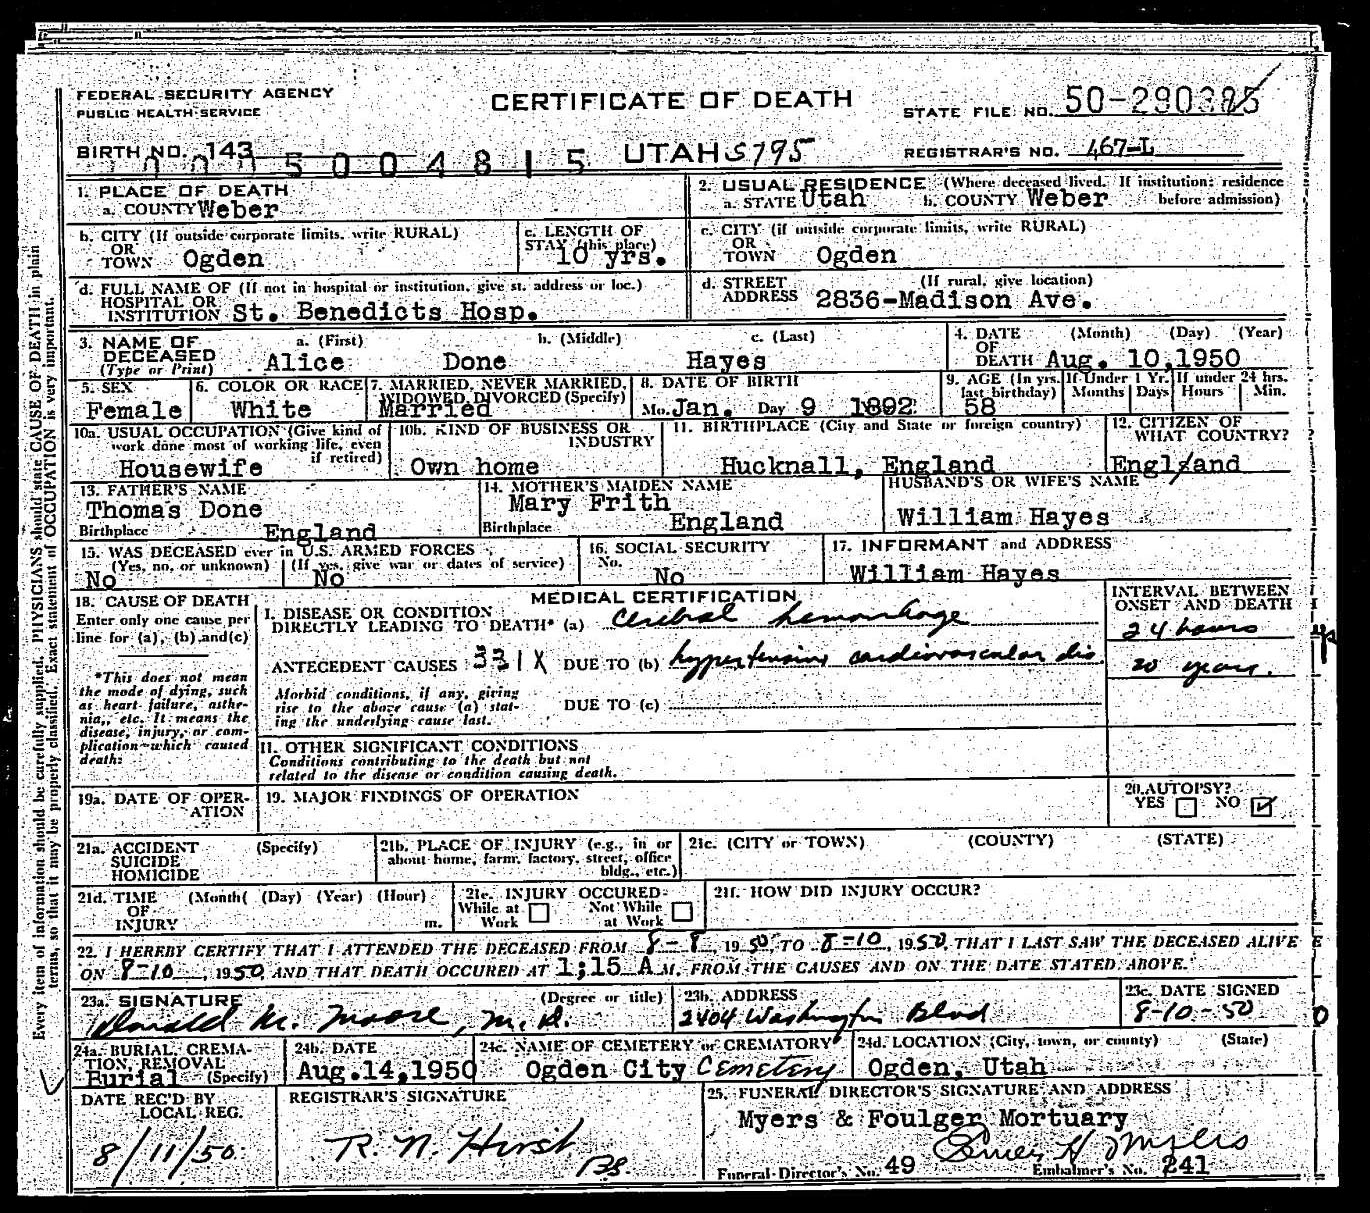 FEDERAL SECURITY AGENCY
PUBLIC HEALTH SERVICE
CERTIFICATE OF DEATH
STATE FILE NO. 50-290385
BIRTH NO. 143
0015004815
UTAH 5795
REGISTRAR'S NO. 467-L
1. PLACE OF DEATH
a. COUNTY Weber
2. USUAL RESIDENCE (Where deceased lived. If institution: residence before admission)
a. STATE Utah b. COUNTY Weber
b. CITY (If outside corporate limits, write RURAL)
OR
TOWN Ogden
c. LENGTH OF
STAY (this place)
10 yrs.
c. CITY (if outside corporate limits, write RURAL)
OR
TOWN Ogden
d. FULL NAME OF (If not in hospital or institution, give st. address or loc.)
HOSPITAL OR
INSTITUTION St. Benedicts Hosp.
d. STREET (If rural, give location)
ADDRESS 2836-Madison Ave.
3. NAME OF DECEASED (Type or Print)
a. (First) b. (Middle) c. (Last)
Alice Done Hayes
4. DATE OF DEATH (Month) (Day) (Year)
Aug. 10,1950
5. SEX
Female
6. COLOR OR RACE
White
7. MARRIED, NEVER MARRIED,
WIDOWED, DIVORCED (Specify)
Married
8. DATE OF BIRTH
Mo. Jan. Day 9 1892
9. AGE (In yrs. last birthday)
58
If Under 1 Yr. Months Days
If under 24 hrs. Hours Min.
10a. USUAL OCCUPATION (Give kind of work done most of working life, even if retired)
Housewife
10b. KIND OF BUSINESS OR INDUSTRY
Own home
11. BIRTHPLACE (City and State or foreign country)
Hucknall, England
12. CITIZEN OF WHAT COUNTRY?
England
13. FATHER'S NAME
Thomas Done
Birthplace England
14. MOTHER'S MAIDEN NAME
Mary Frith
Birthplace England
HUSBAND'S OR WIFE'S NAME
William Hayes
15. WAS DECEASED ever in U.S. ARMED FORCES
(Yes, no, or unknown) (If yes, give war or dates of service)
No No
16. SOCIAL SECURITY
No.
No
17. INFORMANT and ADDRESS
William Hayes
18. CAUSE OF DEATH
Enter only one cause per
line for (a), (b), and (c)
*This does not mean
the mode of dying, such
as heart failure, asthe-
nia, etc. It means the
disease, injury, or com-
plication which caused
death:
MEDICAL CERTIFICATION
I. DISEASE OR CONDITION
DIRECTLY LEADING TO DEATH* (a) cerebral hemorrhage
ANTECEDENT CAUSES 331X DUE TO (b) hypertensive cardiovascular dis.
Morbid conditions, if any, giving
rise to the above cause (a) stat-
ing the underlying cause last.
DUE TO (c)
INTERVAL BETWEEN
ONSET AND DEATH
24 hours
20 years.
II. OTHER SIGNIFICANT CONDITIONS
Conditions contributing to the death but not
related to the disease or condition causing death.
19a. DATE OF OPER-
ATION
19. MAJOR FINDINGS OF OPERATION
20. AUTOPSY?
YES NO
21a. ACCIDENT (Specify)
SUICIDE
HOMICIDE
21b. PLACE OF INJURY (e.g., in or
about home, farm, factory, street, office
bldg., etc.)
21c. (CITY or TOWN) (COUNTY) (STATE)
21d. TIME (Month( (Day) (Year) (Hour)
OF
INJURY m.
21e. INJURY OCCURED
While at Work Not While at Work
21f. HOW DID INJURY OCCUR?
22. I HEREBY CERTIFY THAT I ATTENDED THE DECEASED FROM 8-8, 1950, TO 8-10, 1950, THAT I LAST SAW THE DECEASED ALIVE
ON 8-10, 1950, AND THAT DEATH OCCURED AT 1;15 A M, FROM THE CAUSES AND ON THE DATE STATED ABOVE.
23a. SIGNATURE (Degree or title)
Donald M. Moore, M.D.
23b. ADDRESS
2404 Washington Blvd
23c. DATE SIGNED
8-10-50
24a. BURIAL, CREMA-
TION, REMOVAL
Burial (Specify)
24b. DATE
Aug.14,1950
24c. NAME OF CEMETERY or CREMATORY
Ogden City Cemetery
24d. LOCATION (City, town, or county) (State)
Ogden, Utah
DATE REC'D BY
LOCAL REG.
8/11/50
REGISTRAR'S SIGNATURE
R. N. Hirst
25. FUNERAL DIRECTOR'S SIGNATURE AND ADDRESS
Myers & Foulger Mortuary
Funeral Director's No. 49 Embalmer's No. 241
Every item of information should be carefully supplied. PHYSICIANS should state CAUSE OF DEATH in plain
terms, so that it may be properly classified. Exact statement of OCCUPATION is very important.